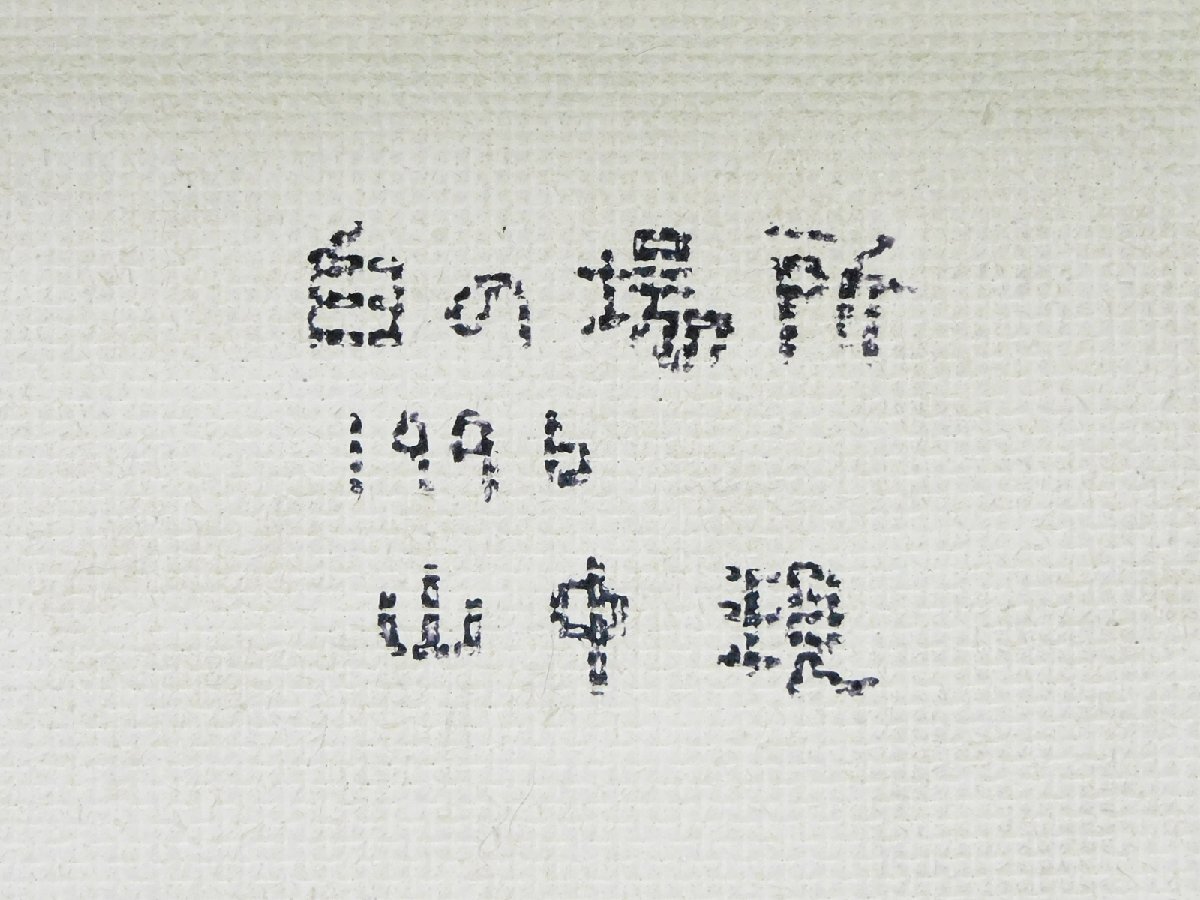 白の場所
1996
山中現